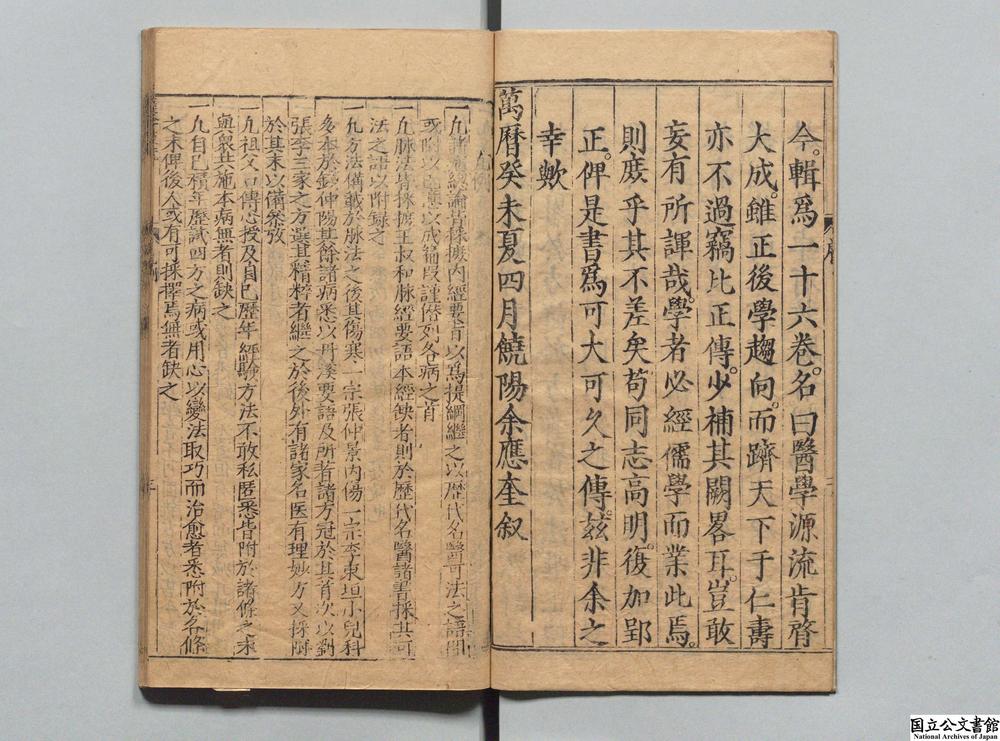 今輯爲一十六巻名曰醫學源流肯綮
大成雖正後學趨向而躋天下于仁壽
亦不過竊比正傳少補其闕畧耳豈敢
妄有所諢哉學者必經儒學而業此焉
則庶乎其不差矣苟同志高明復加郢
正俾是書爲可大可久之傳茲非余之
幸歟
萬曆癸未夏四月饒陽余應奎叙
一凡諸病總論皆採摭内經要旨以爲提綱繼之以歴代名醫可法之語間
或附以己意以成篇段謹僣列各病之首
一凡脉法皆採摭王叔和脉經要語本經缺者則於歴代名醫諸書採其可
法之語以附録之
一凡方法備載於脉法之後其傷寒一宗張仲景内傷一宗李東垣小兒科
多本於錢仲陽其餘諸病悉以丹溪要語及所著諸方冠於其首次以劉
張李三家之方選其精粹者繼之於後外有諸家名医有理妙方又採附
於其末以備叅攷
一凡祖父口傳心授及自己歴年經驗方法不敢私匿悉皆附於諸條之末
與衆共施本病無者則缺之
一凡自己積年歴試四方之病或用心以變法取巧而治愈者悉附於各條
之末俾後人或有可採擇焉無者缺之
国立公文書館
National Archives of Japan